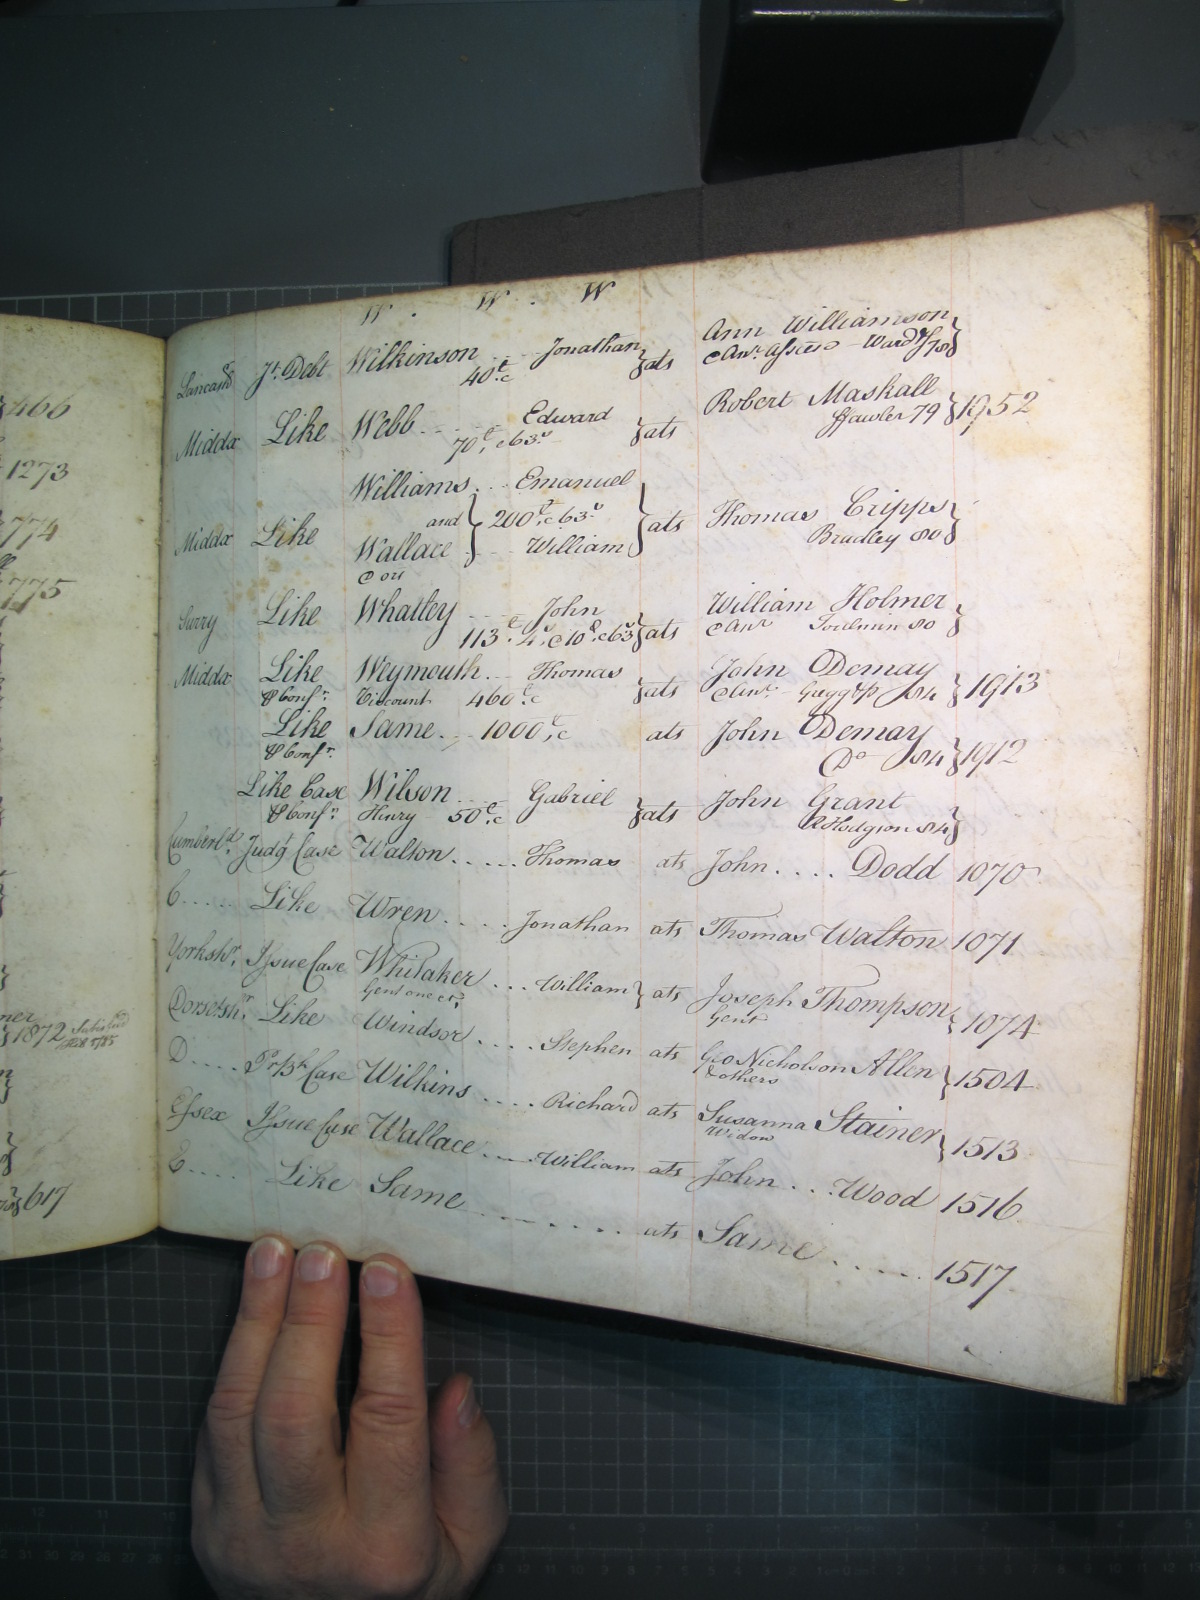 W . W . W
Lancasr. Jt. Debt Wilkinson ... Jonathan } ats Ann Williamson }
40£.c Ward 78
Middx Like Webb .... Edward } ats Robert Maskall } 1952
70£,c63s Fawler 79
Williams ... Emanuel
Middx Like and } 200£,c63s } ats Thomas Cripps }
Wallace ... William Bradley 80
Surry Like Whalley .... John } ats William Holmer }
113£.4s,c10d,c63s Toulmin 80
Middx Like Weymouth ... Thomas } ats John Demay } 1913
& Confn. Viscount 460£.c Gregg & P 84
Like Same ... 1000£,c ats John Demay } 1912
& Confn. Do 84
Like Case Wilson .... Gabriel } ats John Grant }
& Confn. Henry 50£.c Hodgson 84
Cumberld. Judgt Case Walton ..... Thomas ats John .... Dodd 1070
C..... Like Wren .... Jonathan ats Thomas Walton 1071
Yorkshr. Issue Case Whitaker ... William } ats Joseph Thompson } 1074
Gent one &c, Gent
Dorsetshr. Like Windsor .... Stephen ats Geo Nicholson Allen } 1504
& others
D..... Case Wilkins .... Richard ats Susanna Stainer } 1513
Widow
Essex Issue Case Wallace .... William ats John ... Wood 1516
E..... Like Same ........ ats Same ..... 1517
466
1273
774
775
1872
617